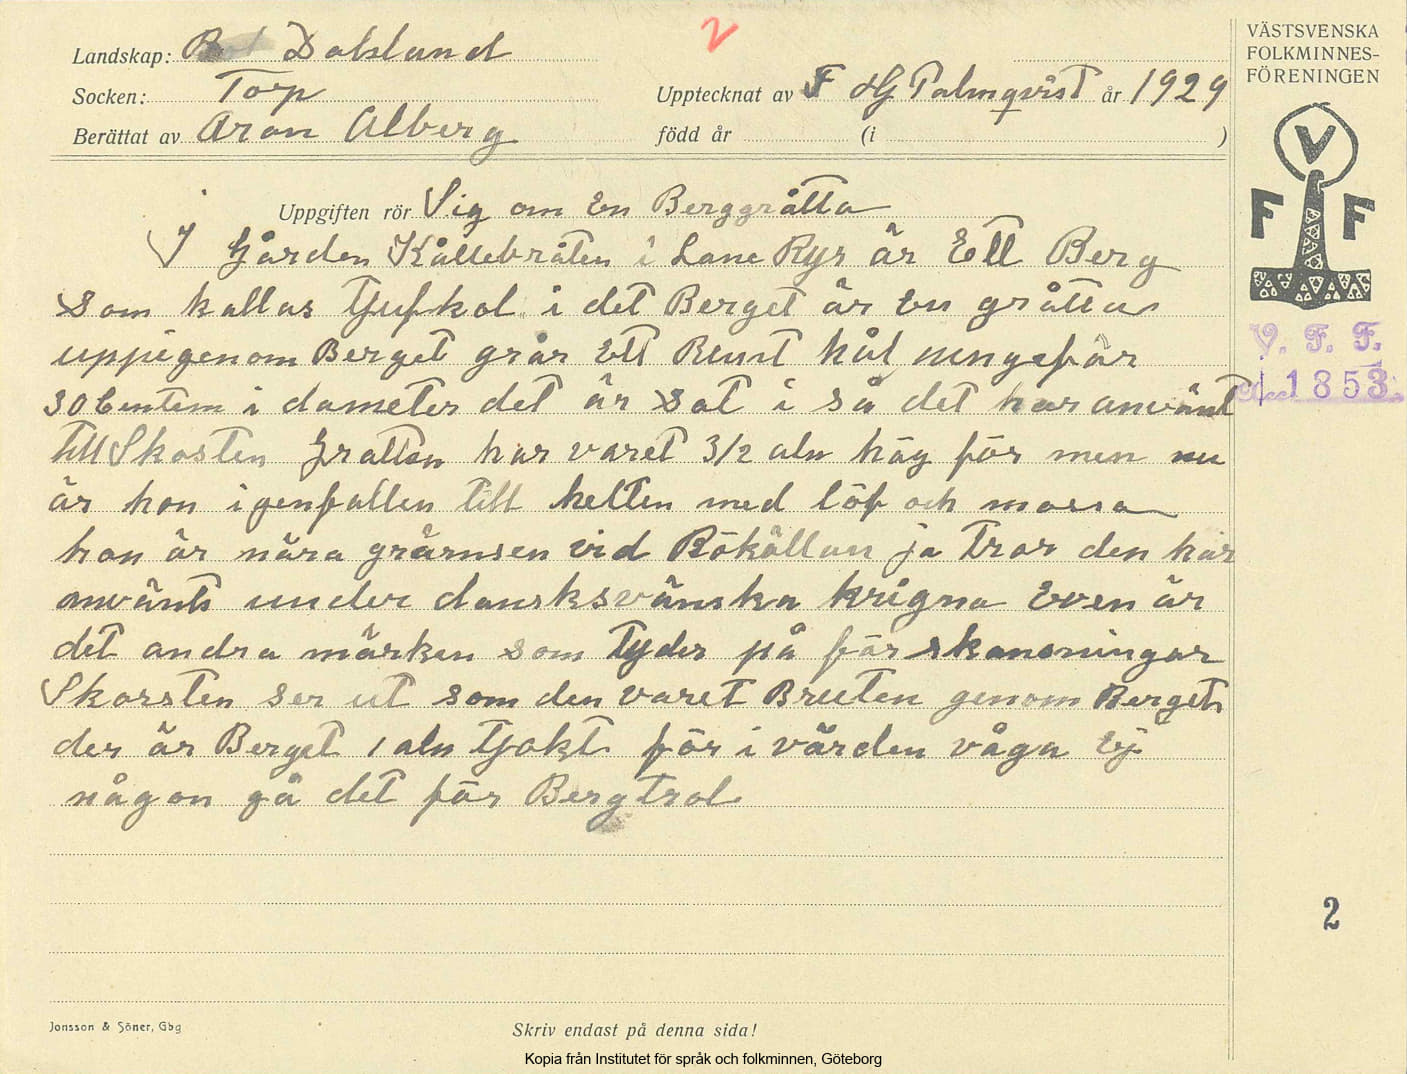 2
VÄSTSVENSKA
FOLKMINNES-
FÖRENINGEN
Landskap: Dalsland
Socken: Torp
Upptecknat av F HG Palmqvist år 1929
Berättat av Aron Alberg
född år (i )
V
F F
Uppgiften rör Sig om En Berggråtta
I Gården Kållebråten i Lane Ryr är Ett Berg
som kallas Tjufkol i det Berget är En gråtta
uppigenom Berget går Ett Runt hål ungefär
30 Centem i dameter det är sot i så det har använt
till Skosten Grattan har varet 3/2 aln häg för men nu
är hon igenfallen till helten med löf och mossa
hon är nära grämsen vid Rökällan ja Tror den här
använts under dansksvänska krigna Even är
det andra märken som Tyder på förskansningar
Skorsten ser ut som den varet Bruten genom Berget
der är Berget 1 aln Tjokt för i värden våga Ej
någon gå det för Bergtrol
V. F. F.
Acc 1853
2
Jonsson & Söner, Gbg
Skriv endast på denna sida!
Kopia från Institutet för språk och folkminnen, Göteborg